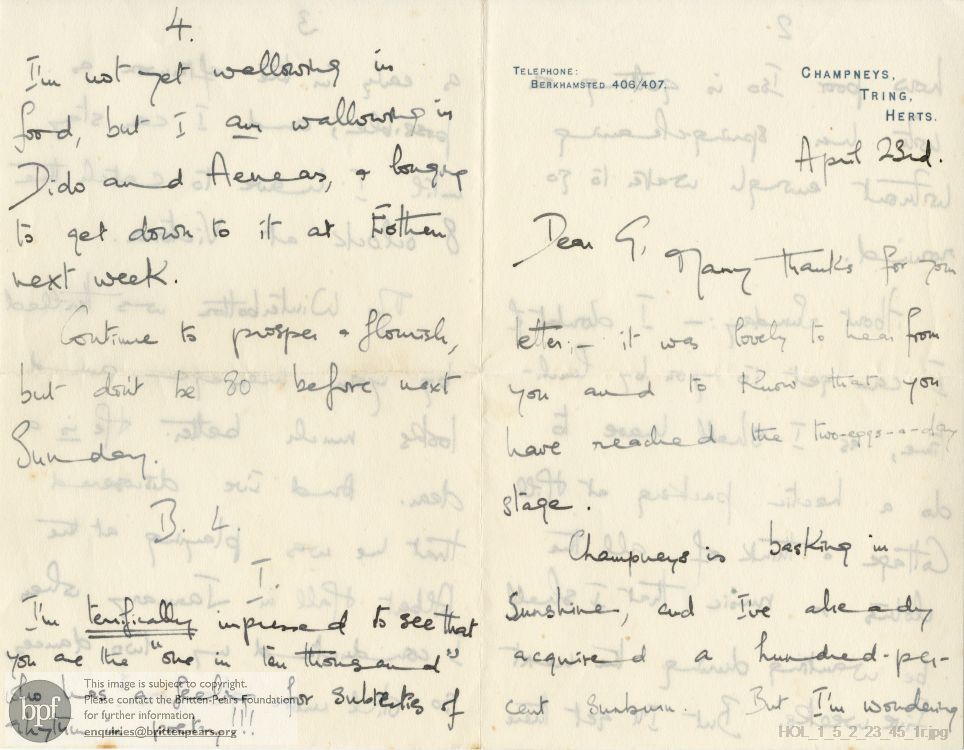 4.
I'm not yet wallowing in
food, but I am wallowing in
Dido and Aeneas, & longing
to get down to it at
next week.
Continue to prosper & flourish,
but don't be 80 before next
Sunday.
B. L.
I.
I'm terrifically impressed to see that
you are the "one in ten thousand"
who has a feeling for subtleties of
rhythm in poetry!!!
TELEPHONE:
BERKHAMSTED 406/407.
CHAMPNEYS,
TRING,
HERTS.
April 23rd.
Dear G,
Many thanks for your
letter; – it was lovely to hear from
you and to know that you
have reached the two-eggs-a-day
stage.
Champneys is basking in
Sunshine, and I've already
acquired a hundred-per-
cent Sunburn. But I'm wondering
bpf
This image is subject to copyright.
Please contact the Britten-Pears Foundation
for further information
enquiries@brittenpears.org
HOL_1_5_2_23_45_1r.jpg